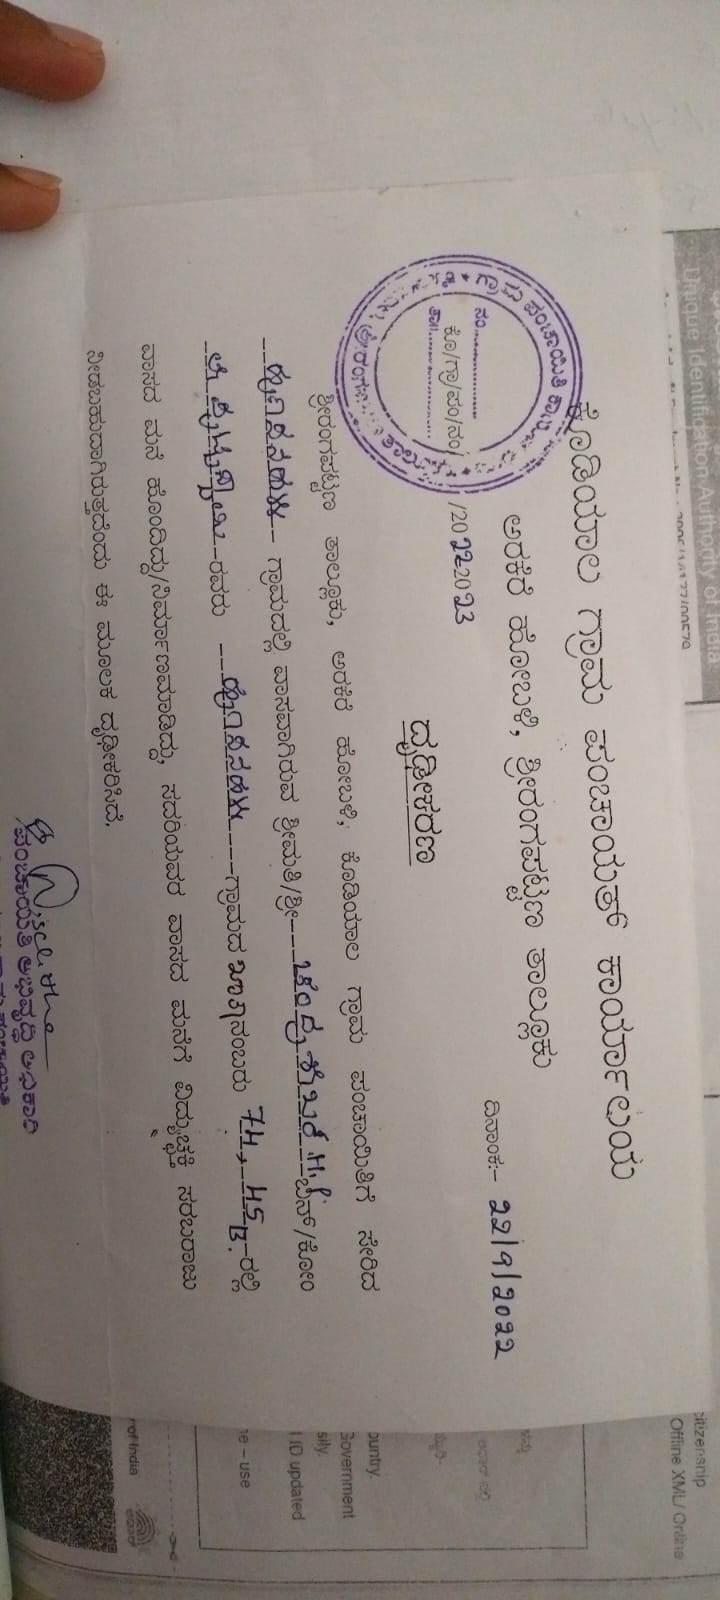 ಕೊಡಿಯಾಲ ಗ್ರಾಮ ಪಂಚಾಯತ್ ಕಾರ್ಯಾಲಯ
ಅರಕೆರೆ ಹೋಬಳಿ, ಶ್ರೀರಂಗಪಟ್ಟಣ ತಾಲ್ಲೂಕು
ನಂ..................
ಕೊ/ಗ್ರಾ/ಪಂ/ಸಂ/ /2022-2023
ತಾ||..................
ದಿನಾಂಕ:- 22/9/2022
ದೃಢೀಕರಣ
ಶ್ರೀರಂಗಪಟ್ಟಣ ತಾಲ್ಲೂಕು, ಅರಕೆರೆ ಹೋಬಳಿ, ಕೊಡಿಯಾಲ ಗ್ರಾಮ ಪಂಚಾಯಿತಿಗೆ ಸೇರಿದ
ಗ್ರಾಮದಲ್ಲಿ ವಾಸವಾಗಿರುವ ಶ್ರೀಮತಿ/ಶ್ರೀ ಚಂದ್ರಶೇಖರ H.P. ಬಿನ್/ಕೋಂ
ರವರು ಗ್ರಾಮದ ಖಾತಾ ನಂಬರು 74, 45/B. ರಲ್ಲಿ
ವಾಸದ ಮನೆ ಹೊಂದಿದ್ದು/ನಿರ್ಮಾಣಮಾಡಿದ್ದು, ಸದರಿಯವರ ವಾಸದ ಮನೆಗೆ ವಿದ್ಯುಚ್ಛಕ್ತಿ ಸರಬರಾಜು
ನೀಡಬಹುದಾಗಿರುತ್ತದೆಂದು ಈ ಮೂಲಕ ದೃಢೀಕರಿಸಿದೆ.
ಪಂಚಾಯಿತಿ ಅಭಿವೃದ್ಧಿ ಅಧಿಕಾರಿ
Unique Identification Authority of India
citizenship
Offline XML/ Online
ountry.
Government
sily.
ID updated
ne – use
of India